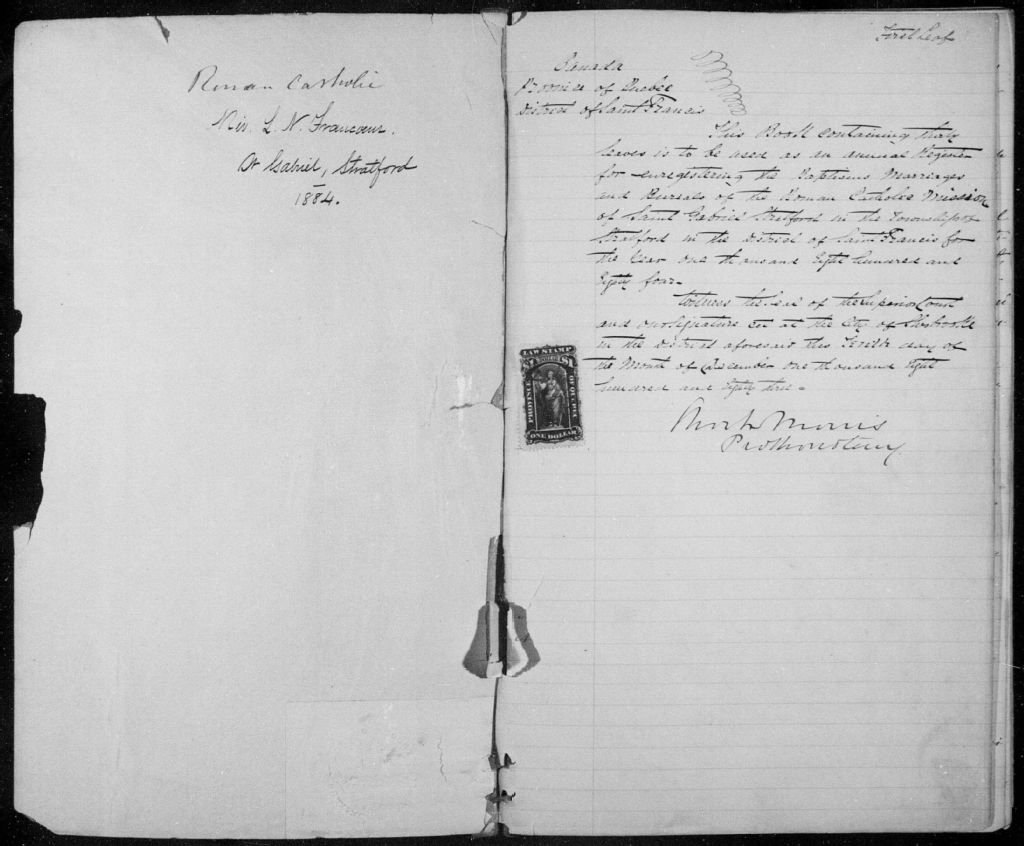 Roman Catholic
Mis. L. N. Francoeur.
St Gabriel, Stratford
1884.
First Leaf
Canada
Province of Quebec
District of Saint Francis
This Book containing thirty
leaves is to be used as an annual Register
for enregistering the Baptisms Marriages
and Burials of the Roman Catholic Mission
of Saint Gabriel Stratford in the Township of
Stratford in the District of Saint Francis for
the Year one thousand Eight hundred and
Eighty four.
Witness the Seal of the Superior Court
and our signature at the City of Sherbrooke
in the District aforesaid this Tenth day of
the Month of December One thousand Eight
hundred and Eighty three.
LAW STAMP
$1 DOLLAR $1
PROVINCE OF QUEBEC
ONE DOLLAR
Short & Morris
Prothonotary